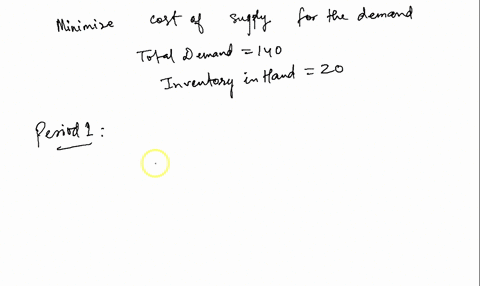 Minimize cost of supply for the demand
Total Demand = 140
Inventory in Hand = 20
Period 1: